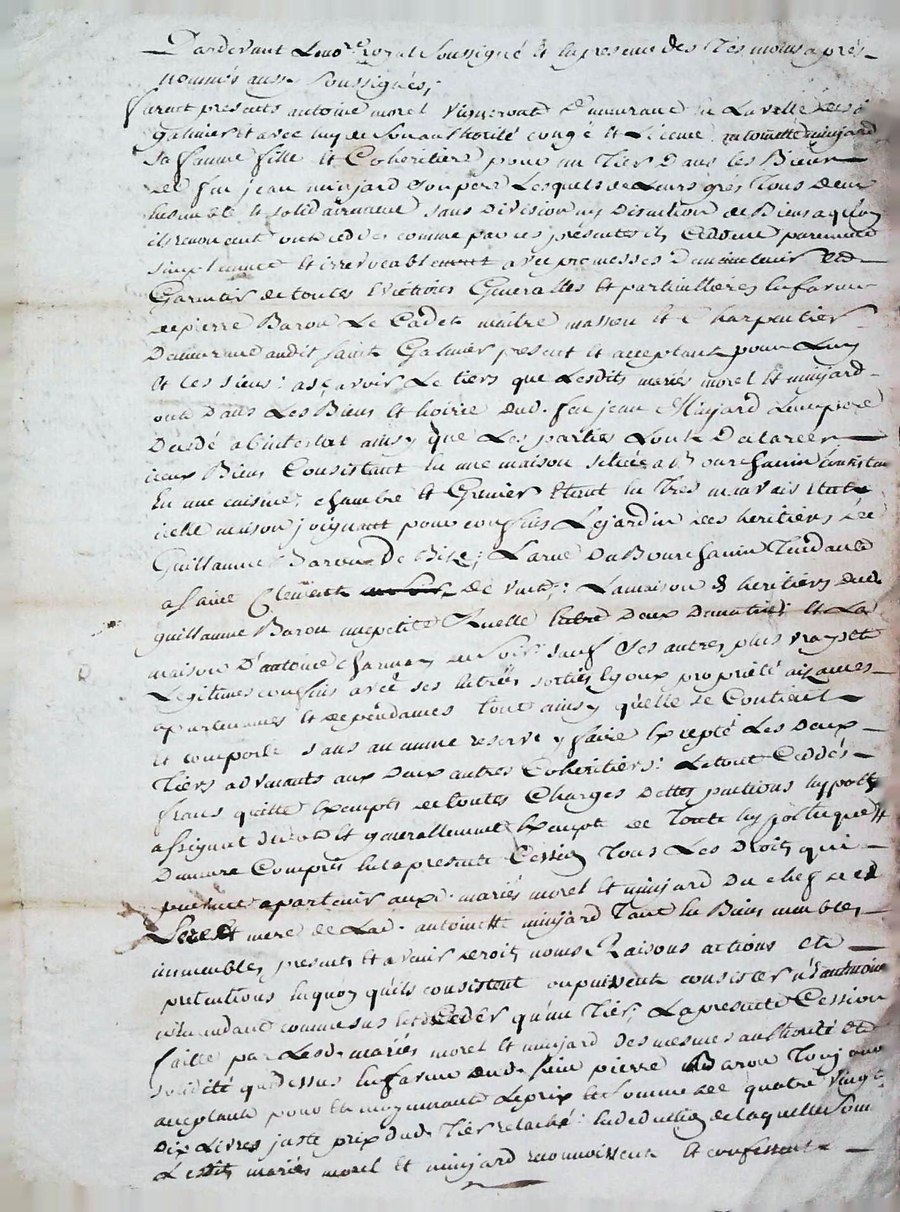 Pardevant Le no.re Royal Soussigné et en presence des Tés moins aprés
nommés aussy soussignés,
furent presents antoine morel Vigneront Demeurant en La ville de s.t
Galmier et avec luy de son authorité congé et Licence antoinette minjard
sa famme fille et Coheritiere pour un Tier Dans les Biens
de feu jean minjard son pere Lesquels de Leurs grés Tous deux
ensemble et solidairement sans Division ny Discution de Biens a quoy
ils renoncent ont ceddé comme par ces présentes ils Cedent purement
simplement et irrevocablement avec promesses de maintenir et
Garentir de toutes Evictions Generalles et particullieres en faveur
de pierre Barou Le Cadet maitre masson et Charpentier
Demeurant audit saint Galmier present et acceptant pour Luy
et Les siens: asçavoir Le tiers que Lesdits mariés morel et minjard
ont Dans Les Biens et hoirie dud. feu jean Minjard Leur pere
Decedé abintestat ainsy que Les parties L'ont Declaréer
iceux Biens Consistant en une maison scituée a Bourchanin Consistan
En une cuisine, chambre et Grenier Etant en Tres mauvais Etat
icelle maison joignant pour confins Le jardin des heritiers de
Guillaume Barou De Bize; La rue Du Bourchanin Tendante
a saint Clement de vent; La maison des heritiers dud.
guillaume Barou une petite Ruelle Entre Deux De matin; et La
maison D'antoine charmay de soir sauf ses autres plus vrays et
Legitimes confins avec ses entrées sorties Eyoux propriété aisances
apartenances et dependances tout ainsy qu'elle se Contient
et comporte sans aucune reserve y faire Excepté Les Deux
Tiers advenants aux Deux autres Coheritiers: Letout Ceddés
franc quitte Exempts de toutes Charges Dettes pentions hypott
assignat et generallement Exempt de Toute hypotheque et
Demeure Compris En la presente Cession Tous Les Droits qui
peuvent apartenir auxd. mariés morel et minjard Du chef de
Pere et mere de Lad. antoinette minjard Tant En Biens meubles
immeubles presents et a venir droits noms Raisons actions et
pretentions Enquoy qu'ils consistent ou puissent consister n'Eantmoins
n'entendant comme sus Est Ceder qu'un Tier; La presente Cession
faitte par Lesd. mariés morel et minjard des mesmes authorité et
solidité que dessus En faveur dud. sieur pierre Barou Toujours
acceptant pour et moyennant Le prix et somme de quatre vingt
Dix Livres juste prix dud. Tier relaché: En deduction de Laquelle som
Lesdits mariés morel et minjard reconnoissent et confessent